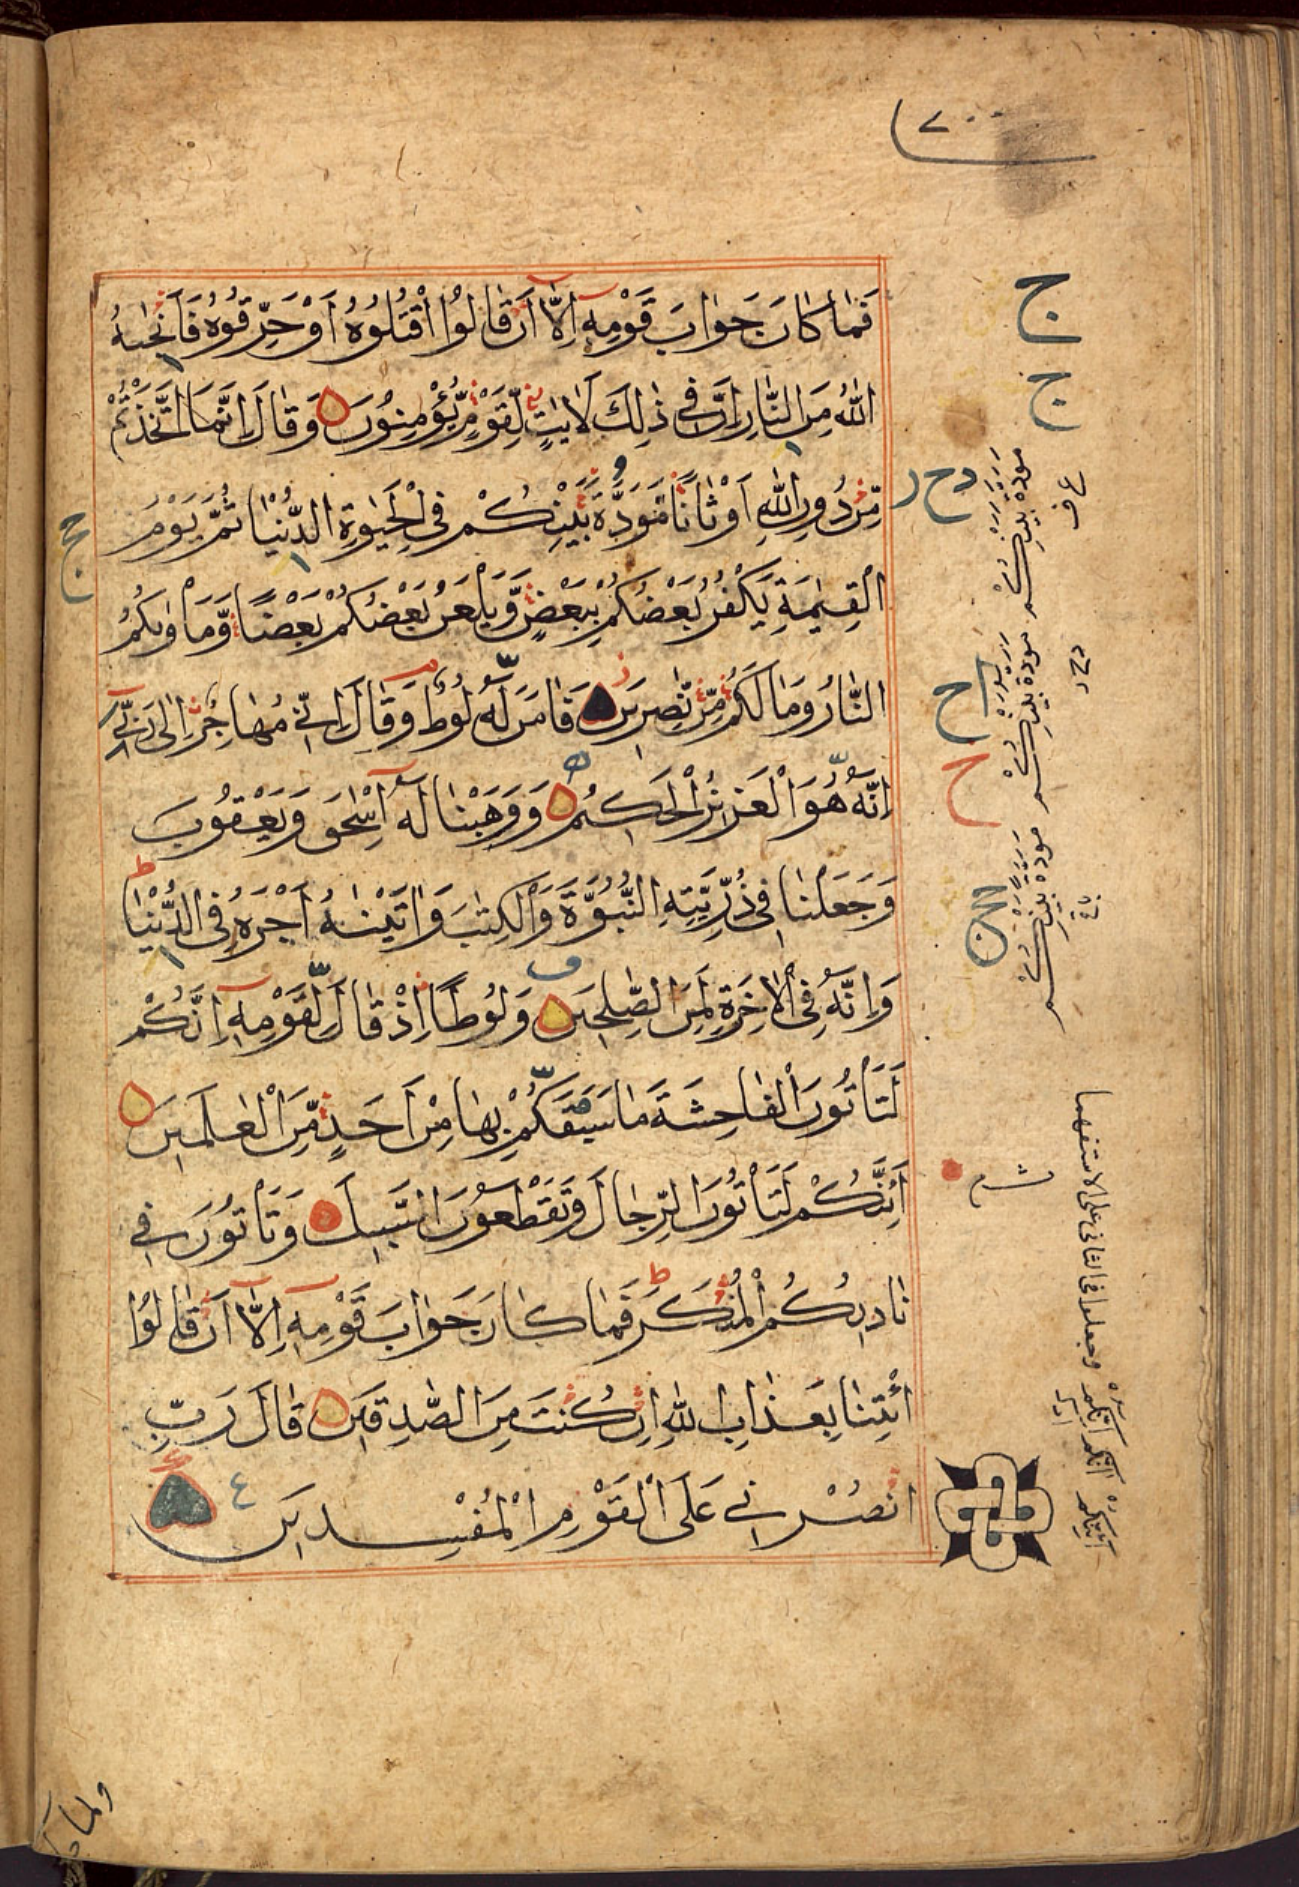 فَمَا كَانَ جَوَابَ قَوْمِهٖ اِلَّا اَنْ قَالُوا اقْتُلُوْهُ اَوْ حَرِّقُوْهُ فَاَنْجٰىهُ
اللّٰهُ مِنَ النَّارِ اِنَّ فِیْ ذٰلِكَ لَاٰیٰتٍ لِّقَوْمٍ یُّؤْمِنُوْنَ وَقَالَ اِنَّمَا اتَّخَذْتُمْ
مِّنْ دُوْنِ اللّٰهِ اَوْثَانًا مَّوَدَّةَ بَیْنِكُمْ فِی الْحَیٰوةِ الدُّنْیَا ثُمَّ یَوْمَ
الْقِیٰمَةِ یَكْفُرُ بَعْضُكُمْ بِبَعْضٍ وَّیَلْعَنُ بَعْضُكُمْ بَعْضًا وَّمَاْوٰىكُمُ
النَّارُ وَمَا لَكُمْ مِّنْ نّٰصِرِیْنَ فَاٰمَنَ لَهٗ لُوْطٌ وَقَالَ اِنِّیْ مُهَاجِرٌ اِلٰى رَبِّیْ
اِنَّهٗ هُوَ الْعَزِیْزُ الْحَكِیْمُ وَوَهَبْنَا لَهٗ اِسْحٰقَ وَیَعْقُوْبَ
وَجَعَلْنَا فِیْ ذُرِّیَّتِهِ النُّبُوَّةَ وَالْكِتٰبَ وَاٰتَیْنٰهُ اَجْرَهٗ فِی الدُّنْیَا
وَاِنَّهٗ فِی الْاٰخِرَةِ لَمِنَ الصّٰلِحِیْنَ وَلُوْطًا اِذْ قَالَ لِقَوْمِهٖ اِنَّكُمْ
لَتَاْتُوْنَ الْفَاحِشَةَ مَا سَبَقَكُمْ بِهَا مِنْ اَحَدٍ مِّنَ الْعٰلَمِیْنَ
اَئِنَّكُمْ لَتَاْتُوْنَ الرِّجَالَ وَتَقْطَعُوْنَ السَّبِیْلَ وَتَاْتُوْنَ فِیْ
نَادِیْكُمُ الْمُنْكَرَ فَمَا كَانَ جَوَابَ قَوْمِهٖ اِلَّا اَنْ قَالُوا
ائْتِنَا بِعَذَابِ اللّٰهِ اِنْ كُنْتَ مِنَ الصّٰدِقِیْنَ قَالَ رَبِّ
انْصُرْنِیْ عَلَى الْقَوْمِ الْمُفْسِدِیْنَ ٤
ج
ج
مودة بینكم
مودة بینكم
مودة بینكم
ولما